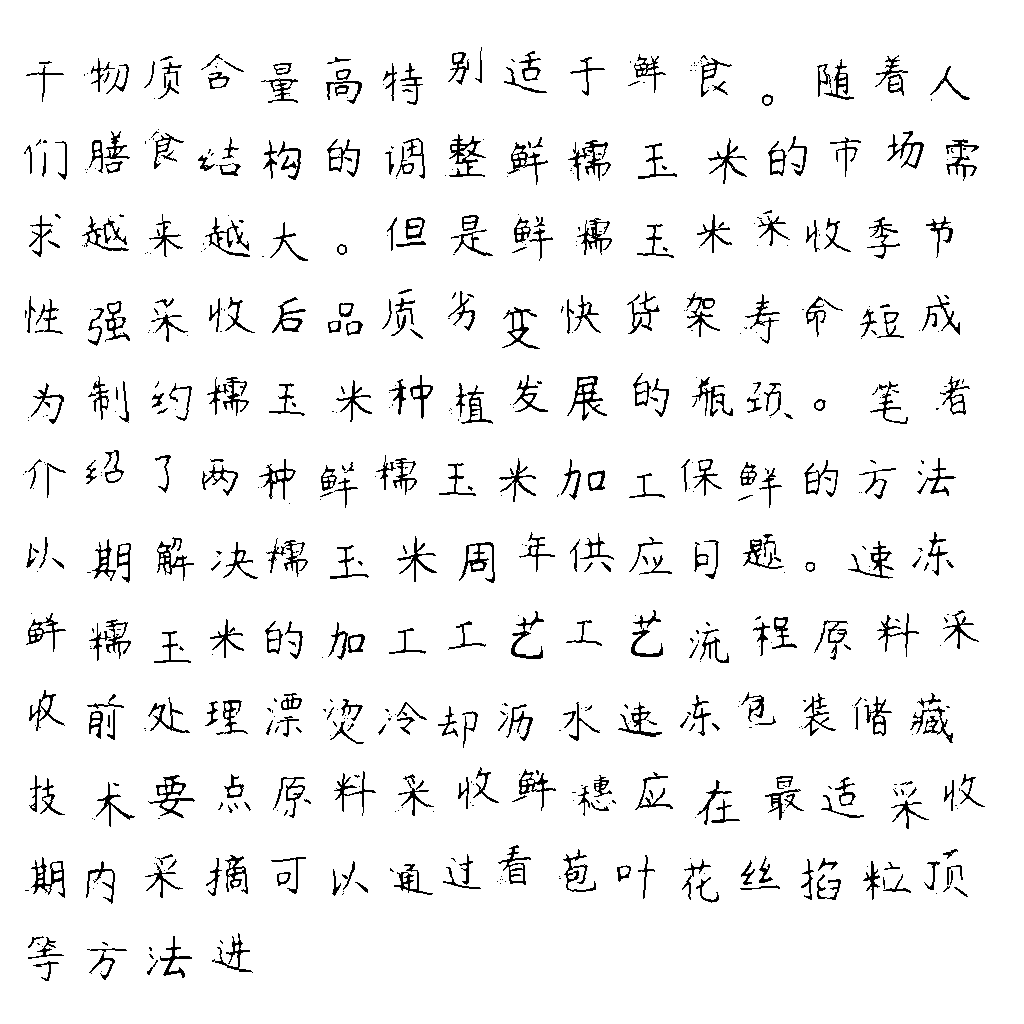 干物质含量高特别适于鲜食。随着人
们膳食结构的调整鲜糯玉米的市场需
求越来越大。但是鲜糯玉米采收季节
性强采收后品质劣变快货架寿命短成
为制约糯玉米种植发展的瓶颈。笔者
介绍了两种鲜糯玉米加工保鲜的方法
以期解决糯玉米周年供应问题。速冻
鲜糯玉米的加工工艺工艺流程原料采
收前处理漂烫冷却沥水速冻包装储藏
技术要点原料采收鲜穗应在最适采收
期内采摘可以通过看苞叶花丝掐粒顶
等方法进